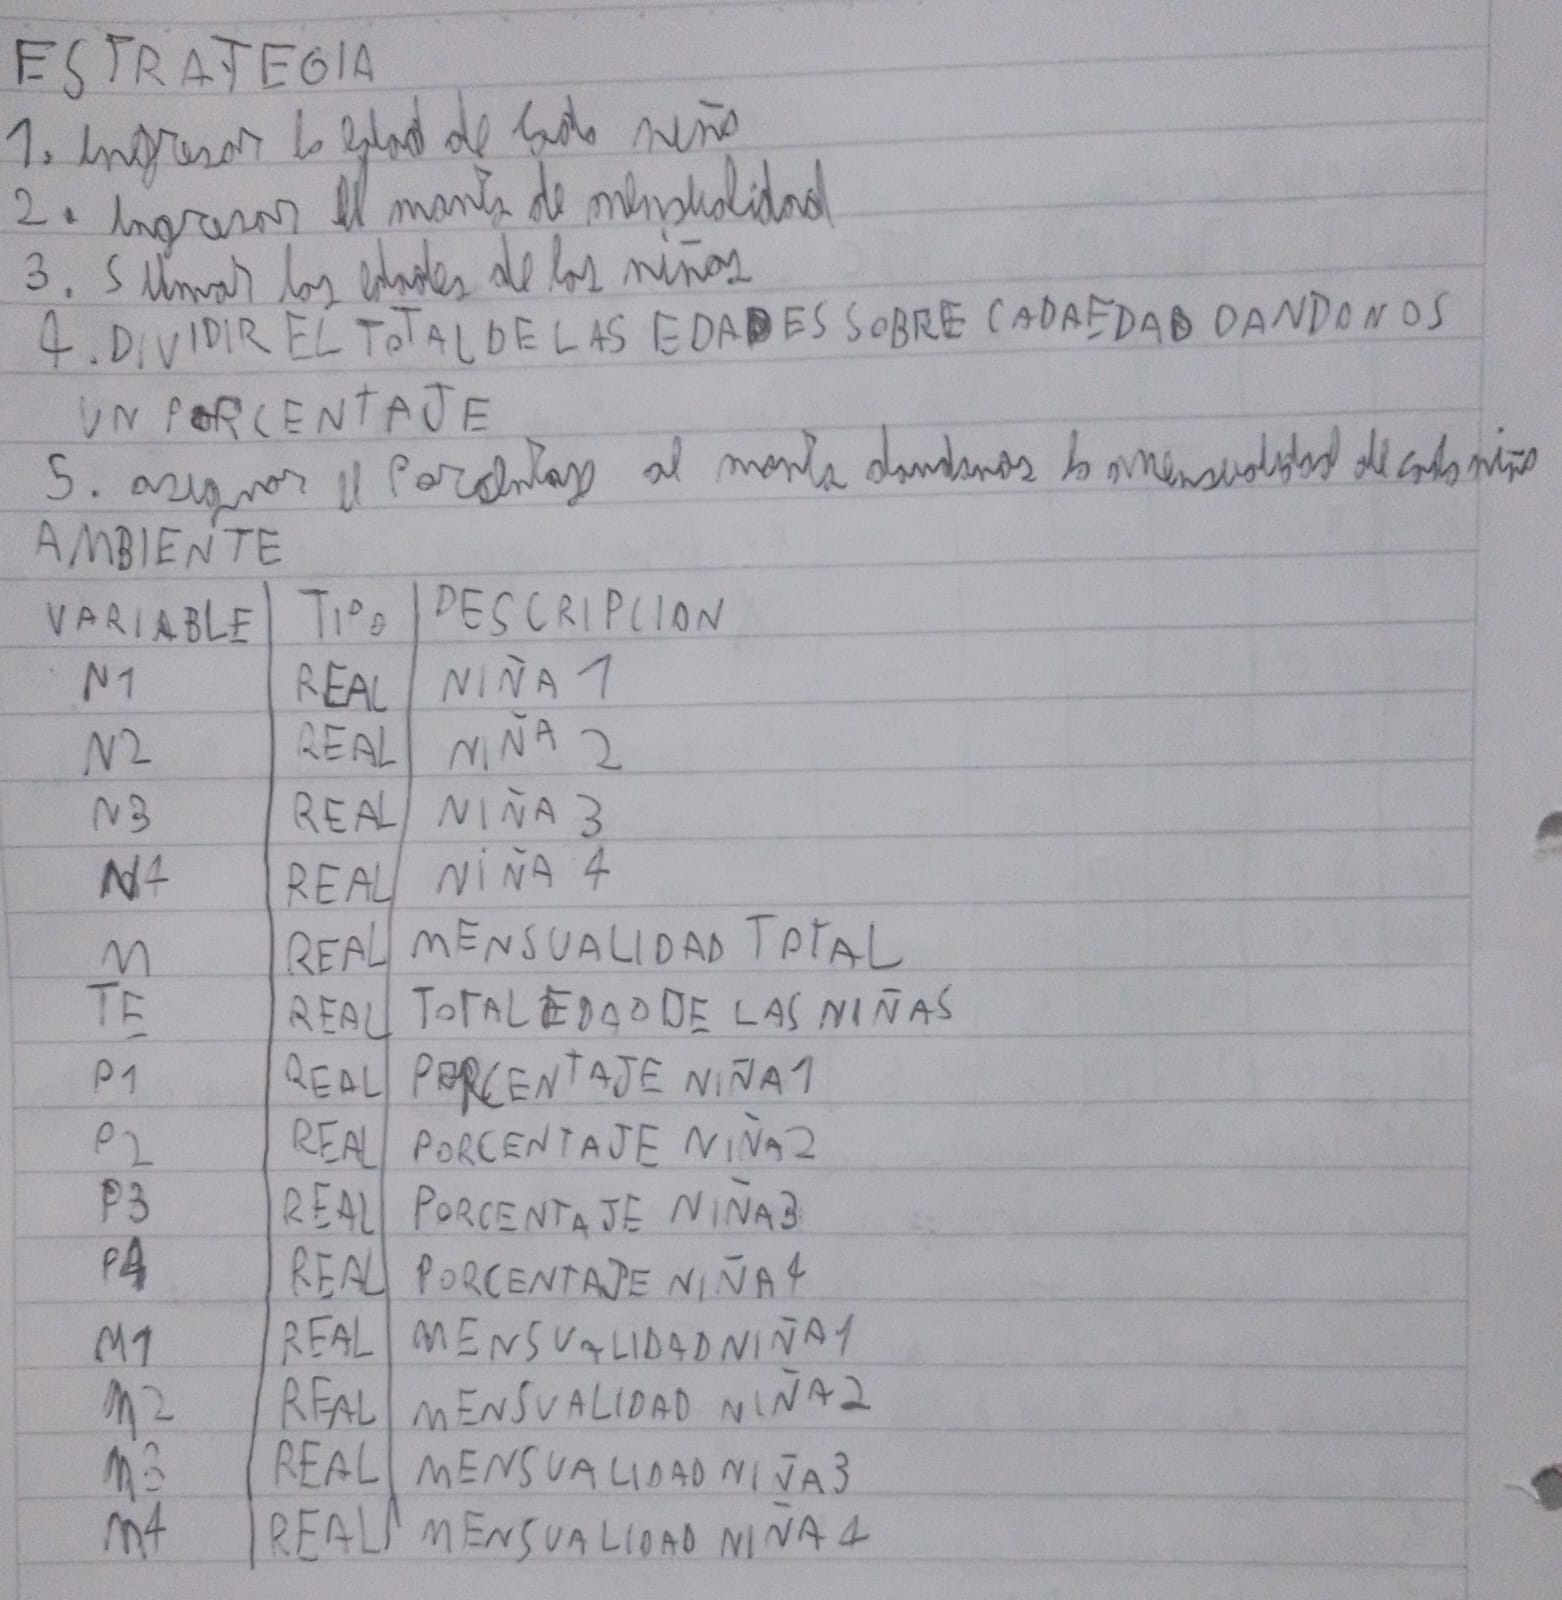 ESTRATEGIA
1. Ingresar la edad de cada niño
2. Ingresar el monto de mensualidad
3. Sumar las edades de las niñas
4. DIVIDIR EL TOTAL DE LAS EDADES SOBRE CADA EDAD DANDONOS
UN PORCENTAJE
5. asignar el Porcentaje al monto dandonos la mensualidad de cada niña
AMBIENTE
VARIABLE TIPO DESCRIPCION
N1 REAL NIÑA 1
N2 REAL NIÑA 2
N3 REAL NIÑA 3
N4 REAL NIÑA 4
M REAL MENSUALIDAD TOTAL
TE REAL TOTAL EDAD DE LAS NIÑAS
P1 REAL PORCENTAJE NIÑA1
P2 REAL PORCENTAJE NIÑA2
P3 REAL PORCENTAJE NIÑA3
P4 REAL PORCENTAJE NIÑA4
M1 REAL MENSUALIDAD NIÑA1
M2 REAL MENSUALIDAD NIÑA2
M3 REAL MENSUALIDAD NIÑA3
M4 REAL MENSUALIDAD NIÑA4